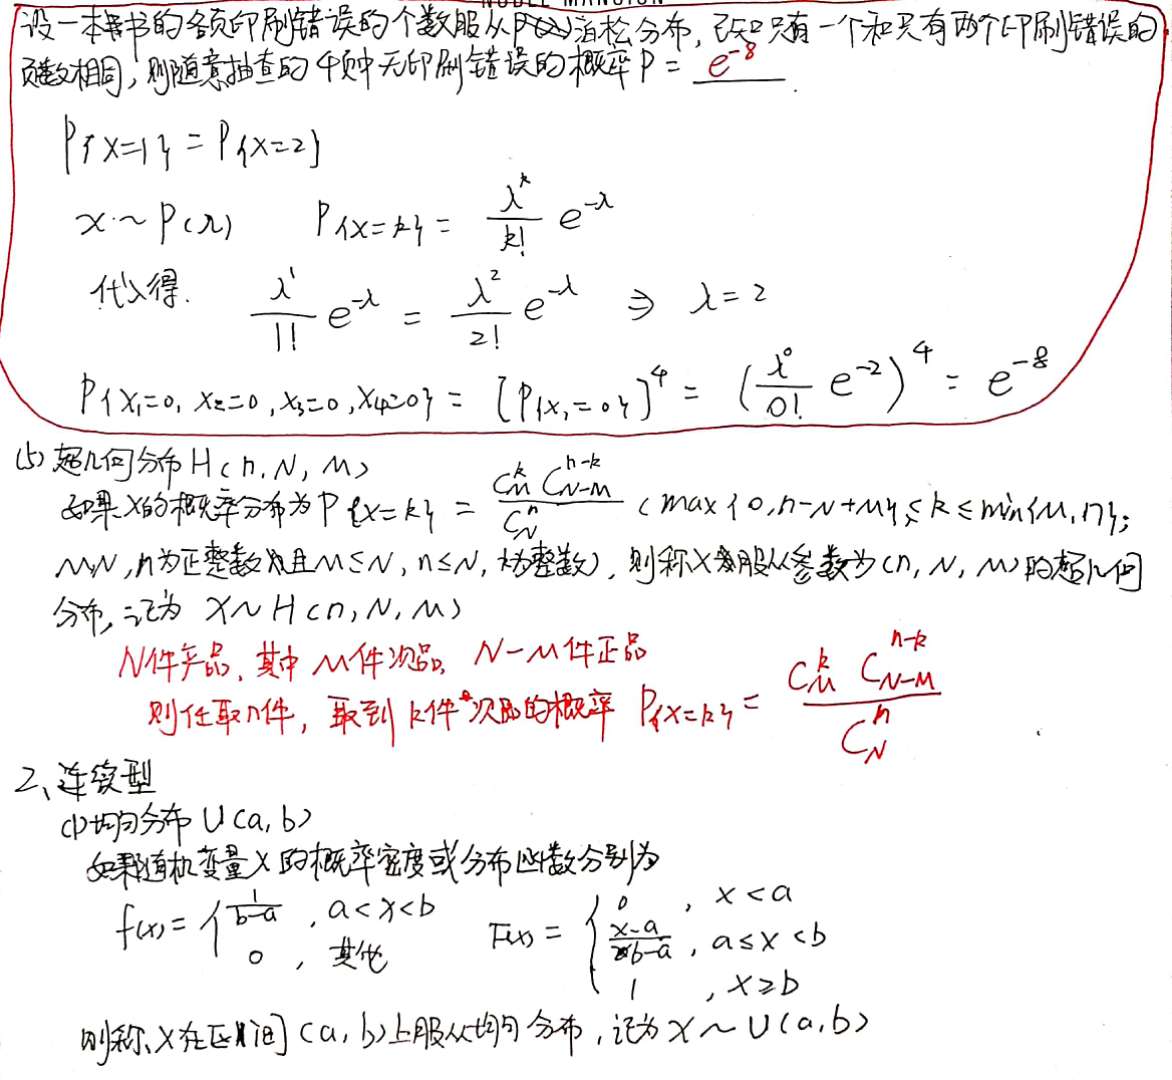 NOBLE MANSION
设一本书的各页印刷错误的个数服从P(λ)泊松分布, 已知只有一个和只有两个印刷错误的
页数相同, 则随意抽查的4页中无印刷错误的概率P = e^{-8}.
P{X=1} = P{X=2}
x ~ P(λ) P{X=k} = \frac{λ^k}{k!} e^{-λ}
代入得. \frac{λ^1}{1!} e^{-λ} = \frac{λ^2}{2!} e^{-λ} ⇒ λ = 2
P{X₁=0, X₂=0, X₃=0, X₄=0} = [P{X₁=0}]^4 = (\frac{λ^0}{0!} e^{-2})^4 = e^{-8}
(5) 超几何分布 H(n, N, M)
如果X的概率分布为P{X=k} = \frac{C_M^k C_{N-M}^{n-k}}{C_N^n} (max{0, n-N+M} ≤ k ≤ min{M, n};
M,N,n为正整数且M≤N, n≤N, k为整数), 则称X服从参数为(n, N, M)的超几何
分布, 记为 X ~ H(n, N, M)
N件产品, 其中M件次品, N-M件正品
则任取n件, 取到k件次品的概率 P{X=k} = \frac{C_M^k C_{N-M}^{n-k}}{C_N^n}
2、连续型
(1) 均匀分布 U(a, b)
如果随机变量X的概率密度或分布函数分别为
f(x) = { \frac{1}{b-a}, a<x<b F(x) = { 0, x<a
0, 其他 \frac{x-a}{b-a}, a≤x<b
1, x≥b
则称X在区间(a, b)上服从均匀分布, 记为X ~ U(a, b)